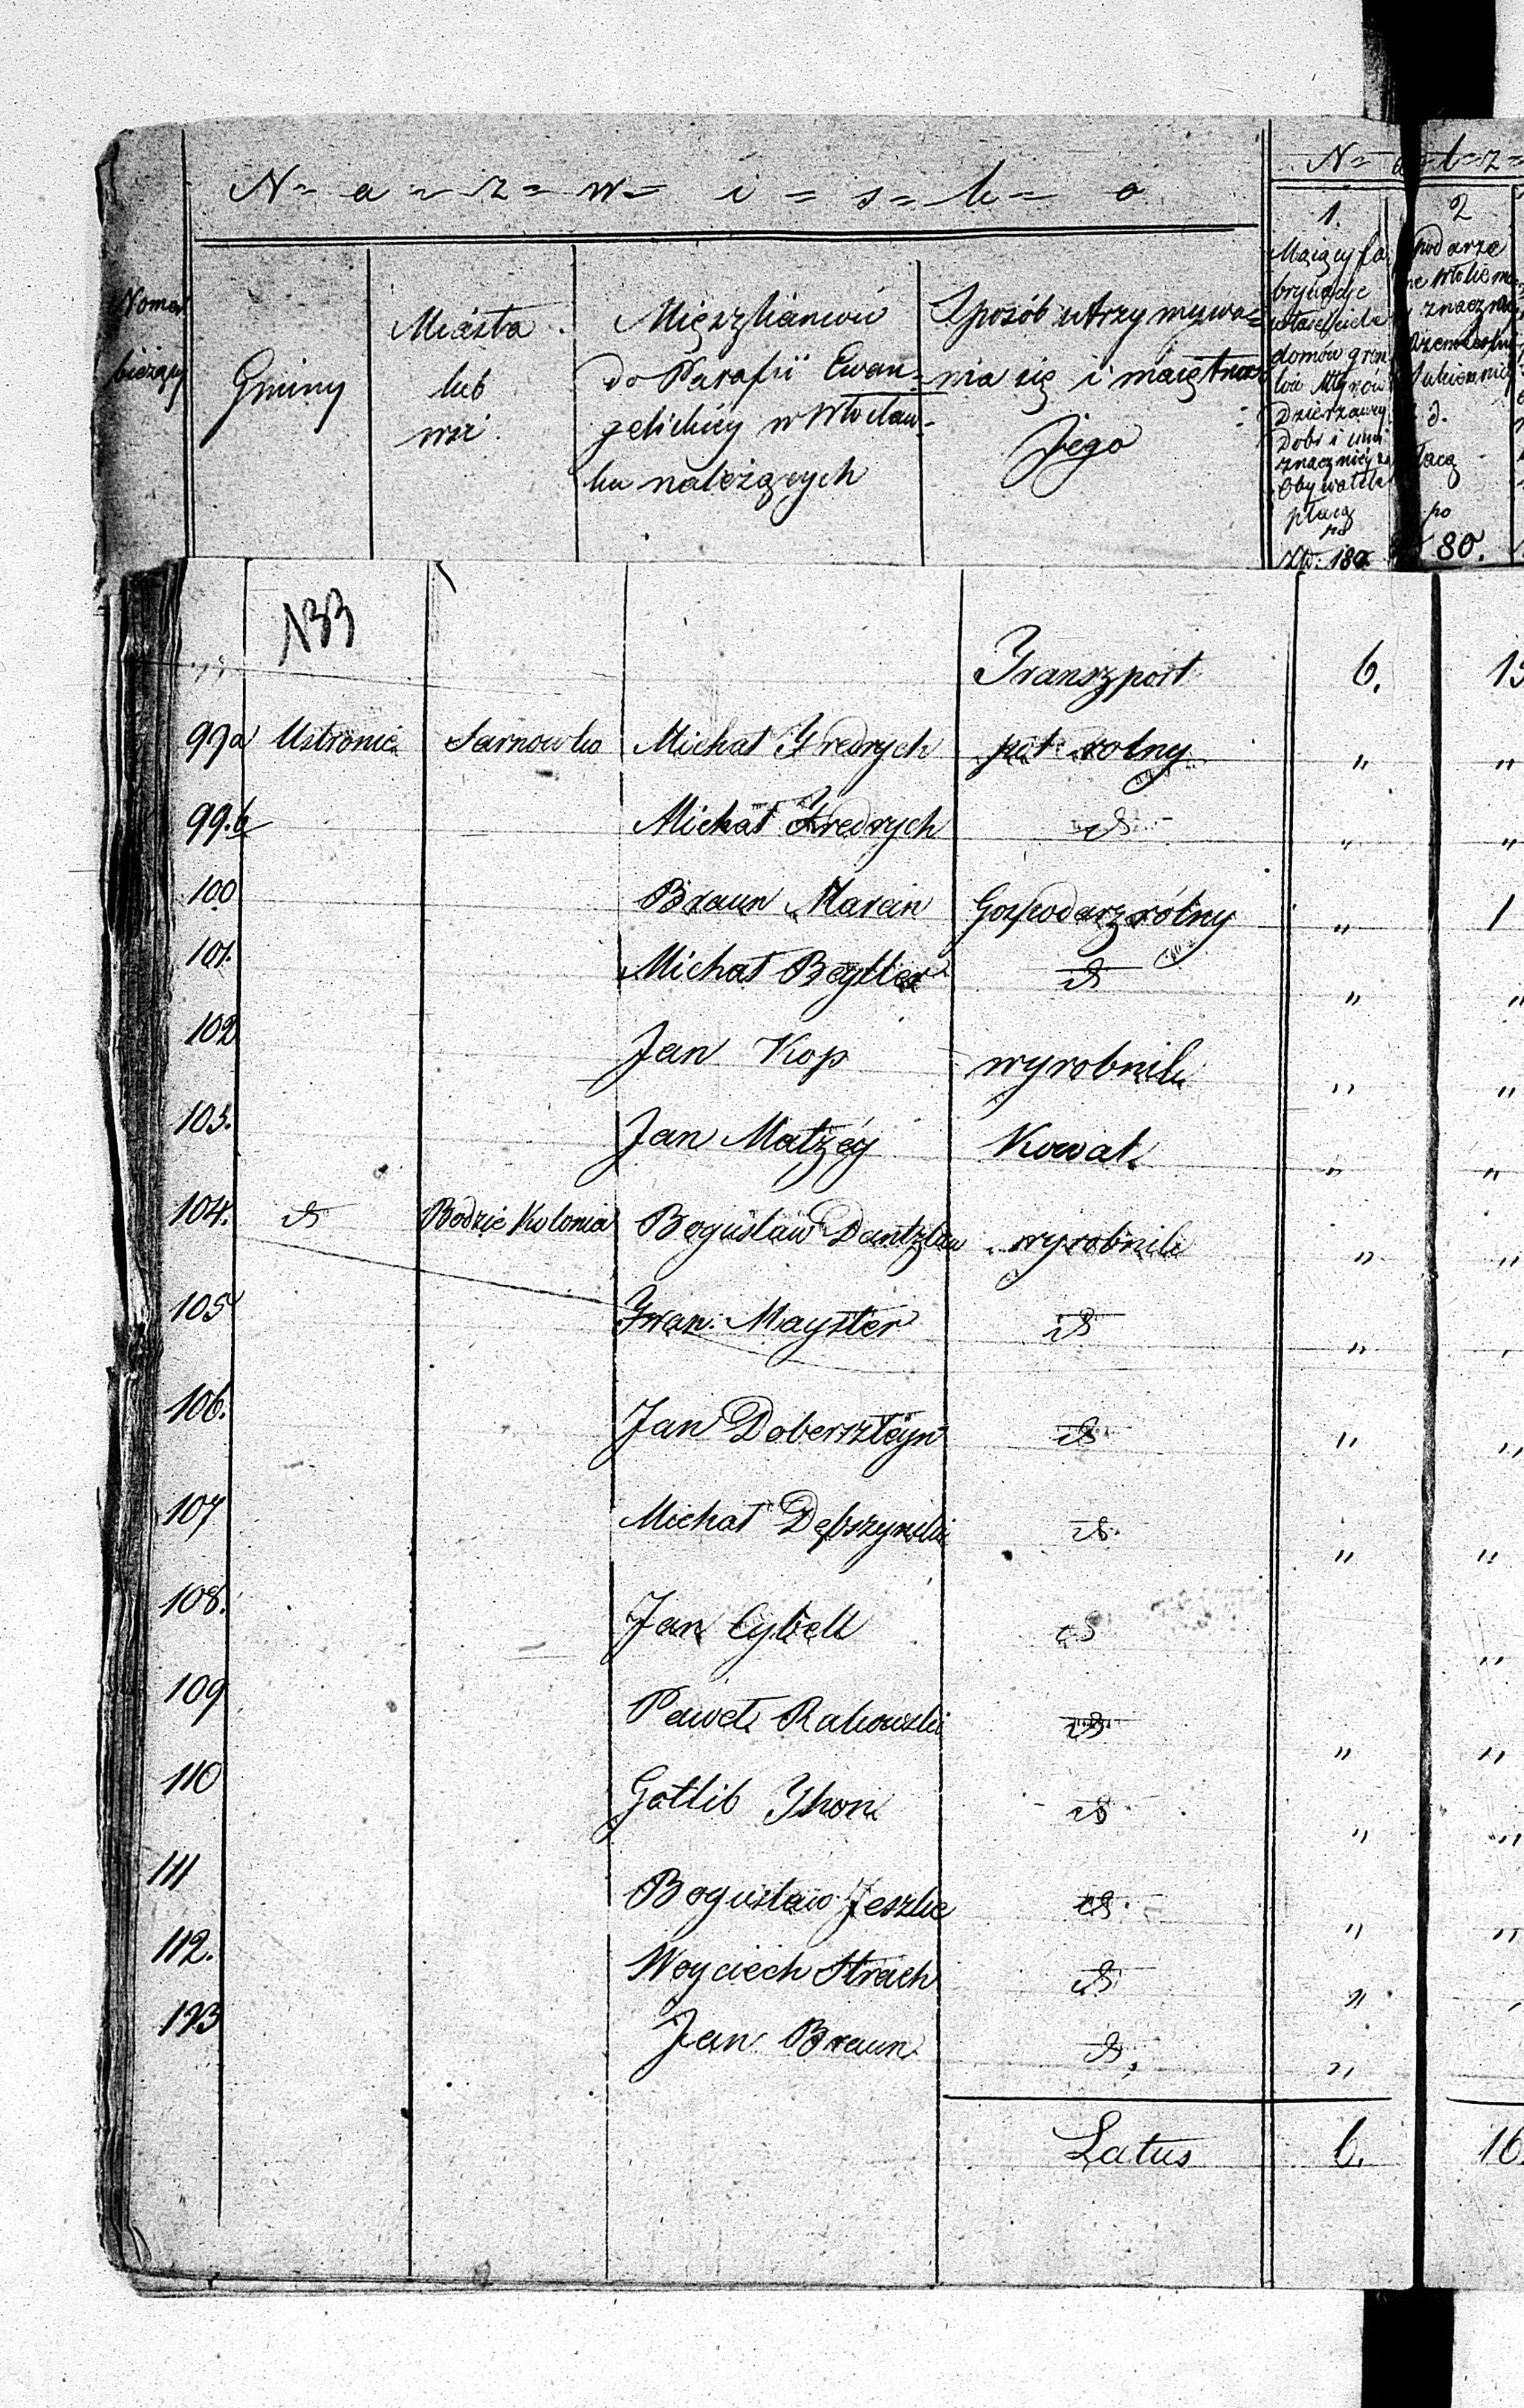 N = a = z = w = i = s = k = o
Numer bieżący
Gminy
Miasta
lub
wsi
Mięszkańców
do Parafii Ewan=
gelickiey w Włocław=
ku należących
Sposób utrzymywa=
nia się i maiętność
Jego
1.
Maiący fa
brykacye
właściciele
domów grun
tów Młynów
Dzierzawcy
Dobr i inni
znacznieysi
Obywatele
płacą
po
Złt. 180
2
80.
133
Transzport 6. 15
99a Ustronie Sarnowko Michał Fredrych pół rolny " "
99.b Michał Fredrych d " "
100 Braun Marcin Gospodarz rólny " 1
101. Michał Beytler d " "
102 Jan Kop wyrobnik " "
103. Jan Matzéy Kowal " "
104. d Bodzie Kolonia Bogusław Dantzlau wyrobnik " "
105 Fran: Mayster d "
106. Jan Dobersztéyn d " "
107 Michał Dębszynski d " "
108. Jan Cybell d "
109 Paweł Rakowski d " "
110 Gotlib Thon d " "
111 Bogusław Jeszke d " "
112. Woyciech Strach d "
123 Jan Braun d "
Latus 6. 16.